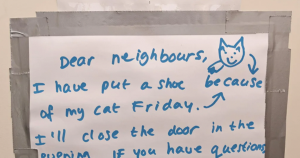 Dear neighbours,
I have put a shoe because
of my cat Friday.
I'll close the door in the
evening. If you have questions